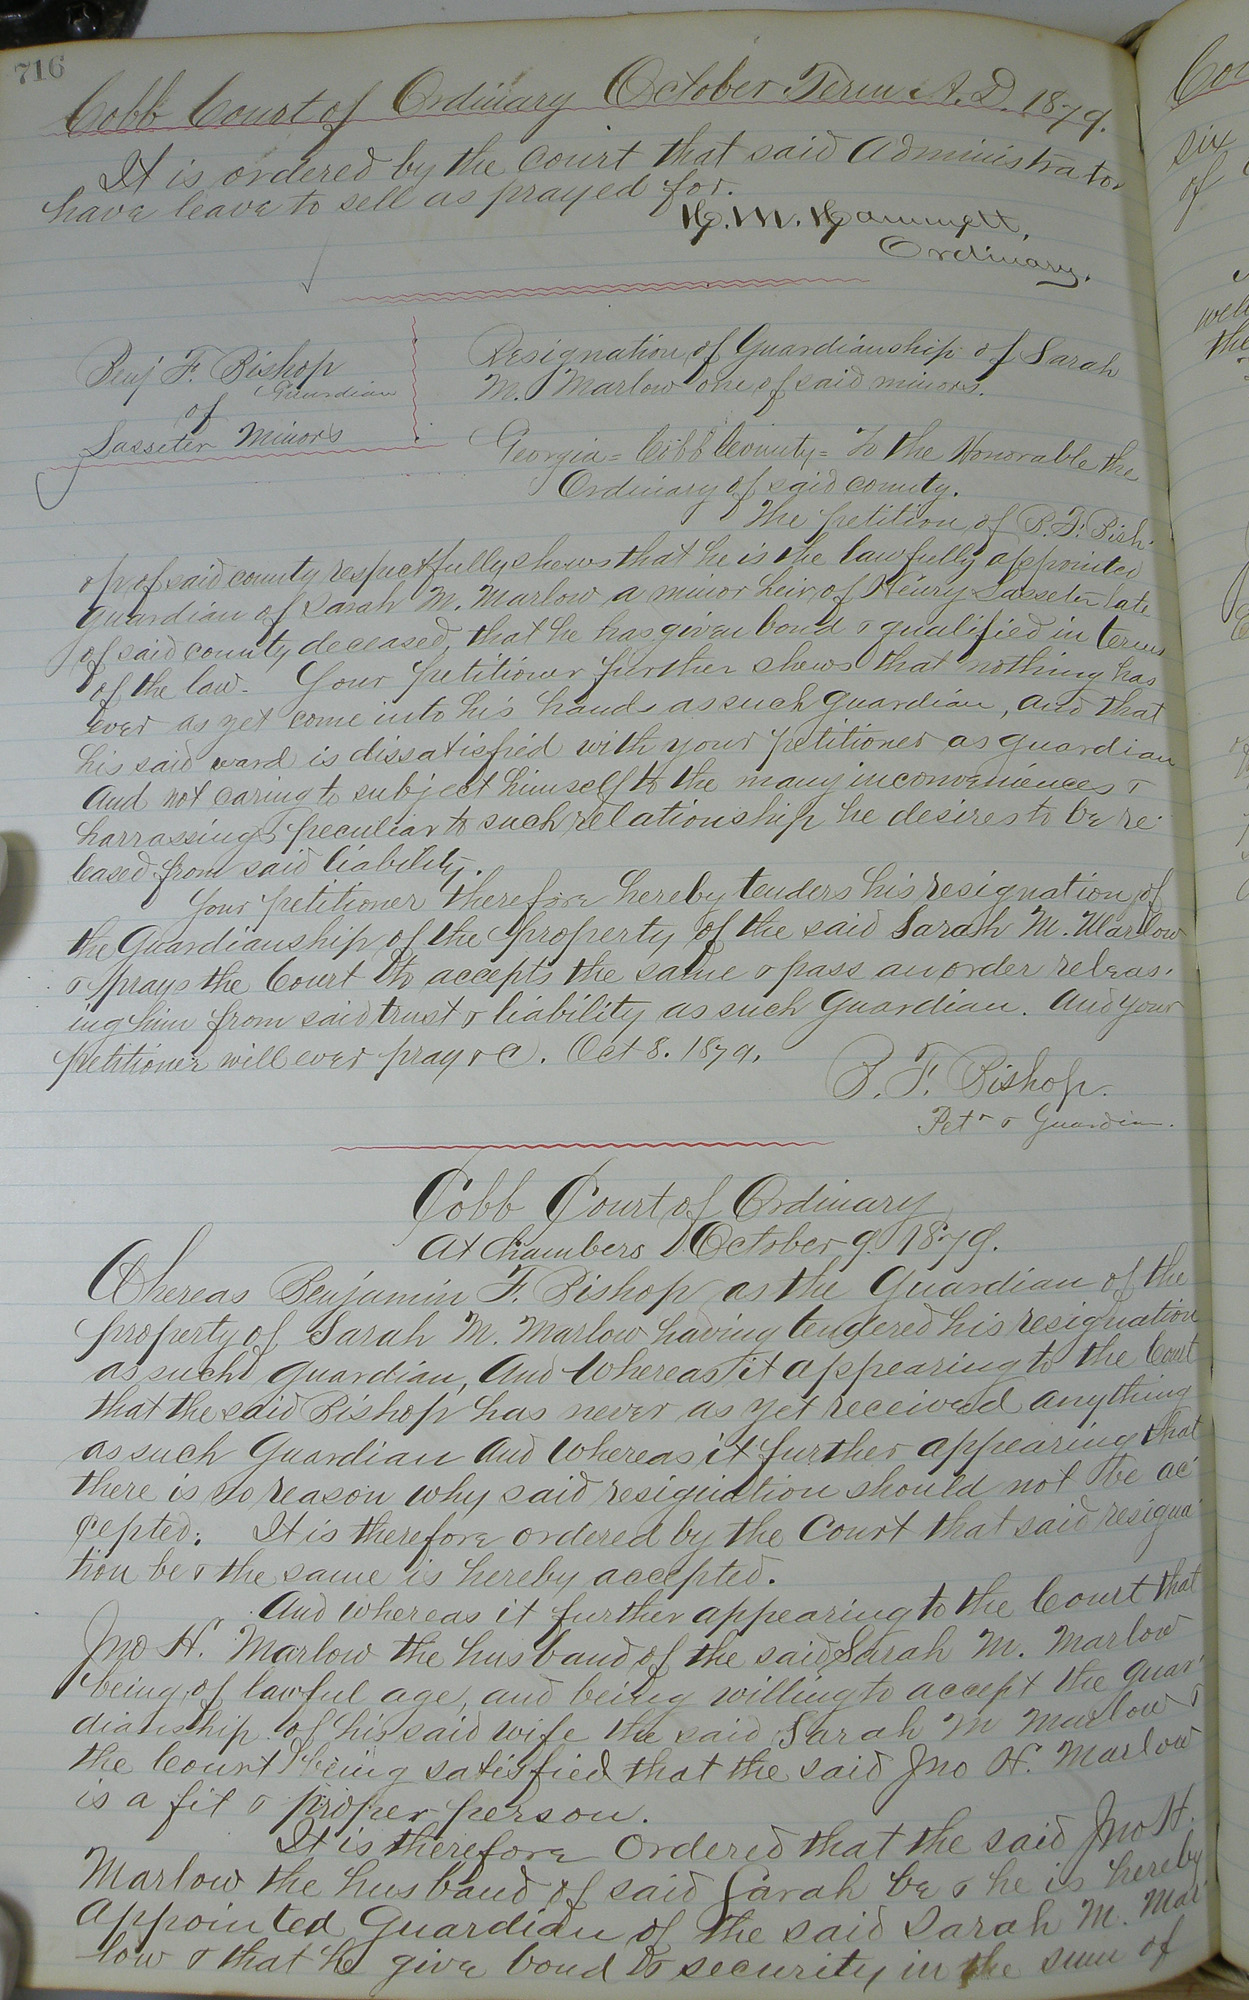 716
Cobb Court of Ordinary October Term A.D. 1879.
It is ordered by the Court that said Administrator
have leave to sell as prayed for.
H. M. Hammett,
Ordinary.
Benj F. Bishop
Guardian
of
Lasseter Minors
Resignation of Guardianship of Sarah
M. Marlow one of said minors.
Georgia = Cobb County = To the Honorable the
Ordinary of said county.
The petition of B. F. Bish-
op of said county respectfully shews that he is the lawfully appointed
guardian of Sarah M. Marlow a minor heir of Henry Lasseter late
of said county deceased, that he has given bond & qualified in terms
of the law. Your petitioner further shews that nothing has
ever as yet come into his hands as such guardian, and that
his said ward is dissatisfied with your petitioner as guardian
And not caring to subject himself to the many inconveniences &
harrassings peculiar to such relationship he desires to be re-
leased from said liability.
Your petitioner therefore hereby tenders his resignation of
the Guardianship of the property of the said Sarah M. Marlow
& prays the Court to accepts the same & pass an order releas-
ing him from said trust & liability as such Guardian. And your
petitioner will ever pray &c. Oct 8. 1879.
B. F. Bishop.
Petr & Guardian.
Cobb Court of Ordinary
At Chambers October 9. 1879.
Whereas Benjamin F. Bishop as the Guardian of the
property of Sarah M. Marlow having tendered his resignation
as such guardian, And Whereas it appearing to the Court
that the said Bishop has never as yet received anything
as such Guardian And Whereas it further appearing that
there is no reason why said resignation should not be ac-
cepted. It is therefore ordered by the Court that said resigna-
tion be & the same is hereby accepted.
And whereas it further appearing to the Court that
Jno H. Marlow the husband of the said Sarah M. Marlow
being of lawful age, and being willing to accept the guar-
dianship of his said wife the said Sarah M Marlow &
the Court being satisfied that the said Jno H. Marlow
is a fit & proper person.
It is therefore Ordered that the said Jno H.
Marlow the husband of said Sarah be & he is hereby
appointed Guardian of the said Sarah M. Mar-
low & that he give bond & security in the sum of
six
of
the